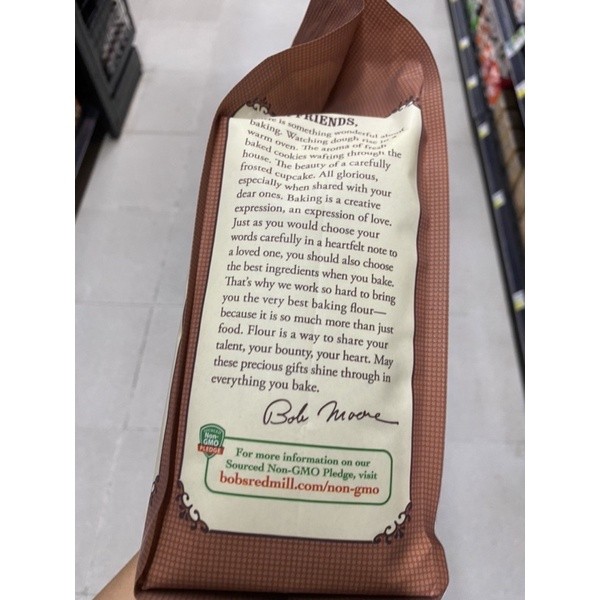 FRIENDS,
is something wonderful about
baking. Watching dough rise in a
warm oven. The aroma of fresh
baked cookies wafting through the
house. The beauty of a carefully
frosted cupcake. All glorious,
especially when shared with your
dear ones. Baking is a creative
expression, an expression of love.
Just as you would choose your
words carefully in a heartfelt note to
a loved one, you should also choose
the best ingredients when you bake.
That's why we work so hard to bring
you the very best baking flour—
because it is so much more than just
food. Flour is a way to share your
talent, your bounty, your heart. May
these precious gifts shine through in
everything you bake.
Bob Moore
Non-
GMO
PLEDGE
For more information on our
Sourced Non-GMO Pledge, visit
bobsredmill.com/non-gmo